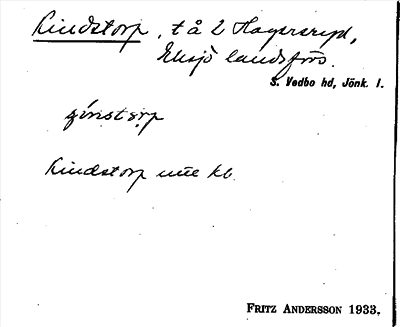 Lindstorp, t å 2 Hagersryd,
Eksjö landsförs.
S. Vedbo hd, Jönk. l.
Lindstorp une kb.
FRITZ ANDERSSON 1933.